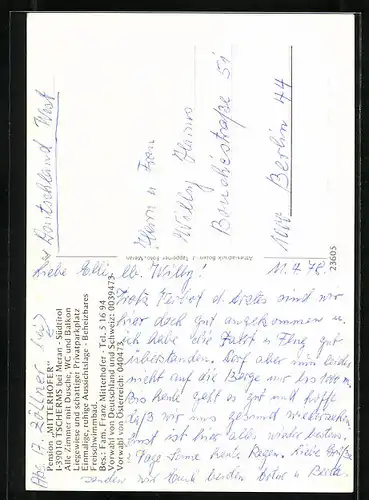 Pension „MITTERHOFER“
I-39010 TSCHERMS bei Meran - Südtirol
Alle Zimmer mit Dusche, WC und Balkon
Liegewiese und schattiger Privatparkplatz
Einmalige, ruhige Aussichtslage - Beheizbares
Freischwimmbad.
Bes.: Fam. Franz Mitterhofer - Tel. 5 16 94
Vorwahl von Deutschland und Schweiz: 0039473
Vorwahl von Österreich: 040473
23605
Deutschland West
Herrn u Frau
Willy
Bouchéstraße 51
Berlin 44
Abs A. Zöllner
11.4.78.
Liebe Elli, lb. Willy!
Trotz Verbot d. Arztes sind wir
hier doch gut angekommen u.
ich habe die Fahrt u. Flug gut
überstanden. Darf aber nun leider
nicht auf die Berge nur bis
Bis heute geht es gut und hoffe
daß wir uns gesund wiedersehen
Sonst ist hier alles wieder bestens.
Tage Sonne heute Regen. Liebe Grüße
senden wir Euch beiden